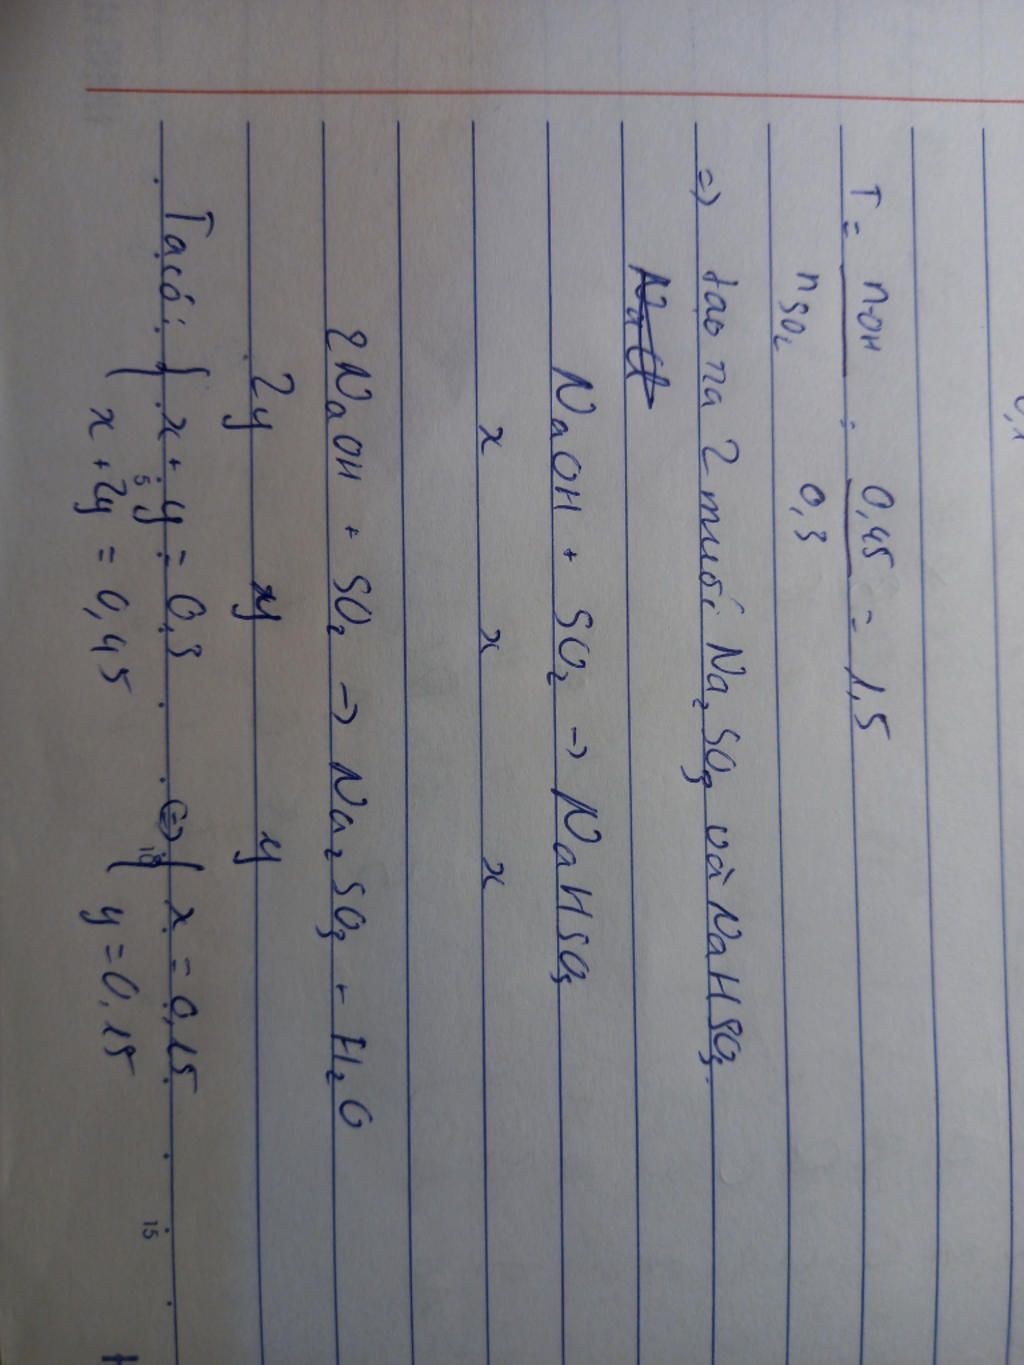 T = nOH : 0,45 = 1,5
nSO₂ 0,3
=> tạo ra 2 muối Na₂SO₃ và NaHSO₃
NaOH + SO₂ → NaHSO₃
x x x
2NaOH + SO₂ → Na₂SO₃ + H₂O
2y y y
Ta có: { x + y = 0,3 <=> { x = 0,15
x + 2y = 0,45 y = 0,15
5 10 15